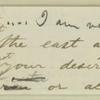 I am
the east a
your desir
or a